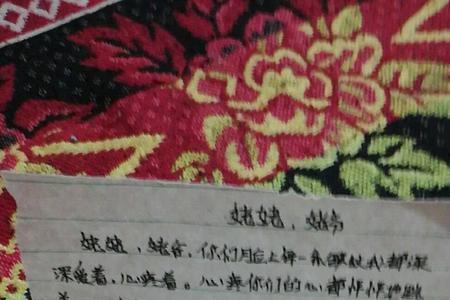 姥姥，姥爷
姥姥，姥爷，你们脸上每一条皱纹我都深
深爱着，心疼着。心疼你们的心都怦怦地跳